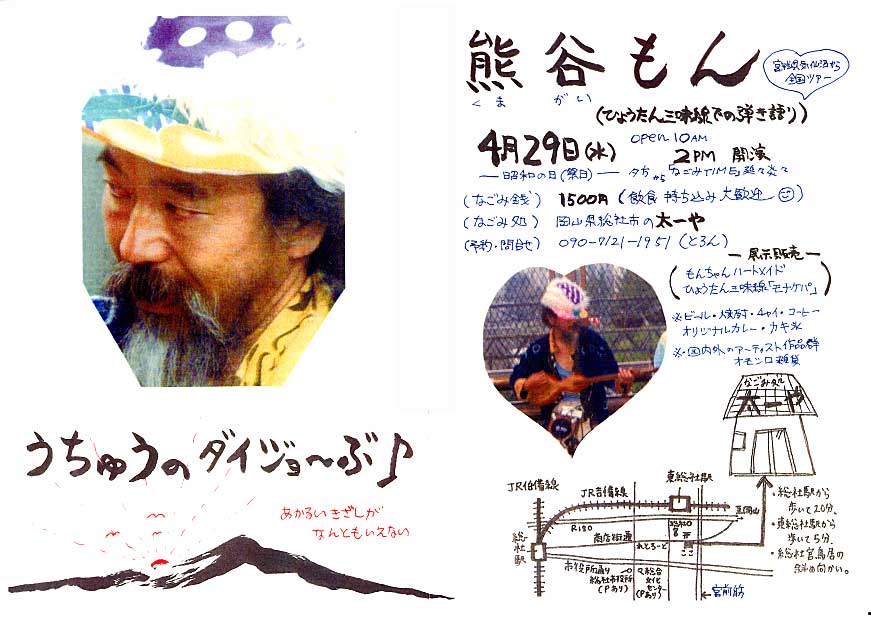 うちゅうの ダイジョ〜ぶ♪
あかるい きざしが
なんとも いえない
熊谷もん
くま がい
宮城県気仙沼から
全国ツアー
(ひょうたん三味線での弾き語り)
open 10AM
4月29日(水) 2PM 開演
— 昭和の日(祭日) — 夕方から「なごみTIME」延々々
(なごみ銭) 1500円 (飲食 持ち込み 大歓迎)
(なごみ処) 岡山県総社市の 太一や
(予約・問合せ) 090-7121-1951 (とろん)
— 展示販売 —
(もんちゃんハートメイド
ひょうたん三味線「モナケパ」)
※ビール・焼酎・チャイ・コーヒー
オリジナルカレー・カキ氷
※・国内外のアーティスト作品群
オモシロ雑貨
なごみ処
太一や
・総社駅から
歩いて20分
・東総社駅から
歩いて5分、
・総社宮鳥居の
斜め向かい。
JR伯備線
JR吉備線
東総社駅
至岡山
R180
総社宮
総社駅
商店街通
れとろーど
ここ
市役所通り
総社市役所
(Pあり)
総合
文化
センター
(Pあり)
宮前筋